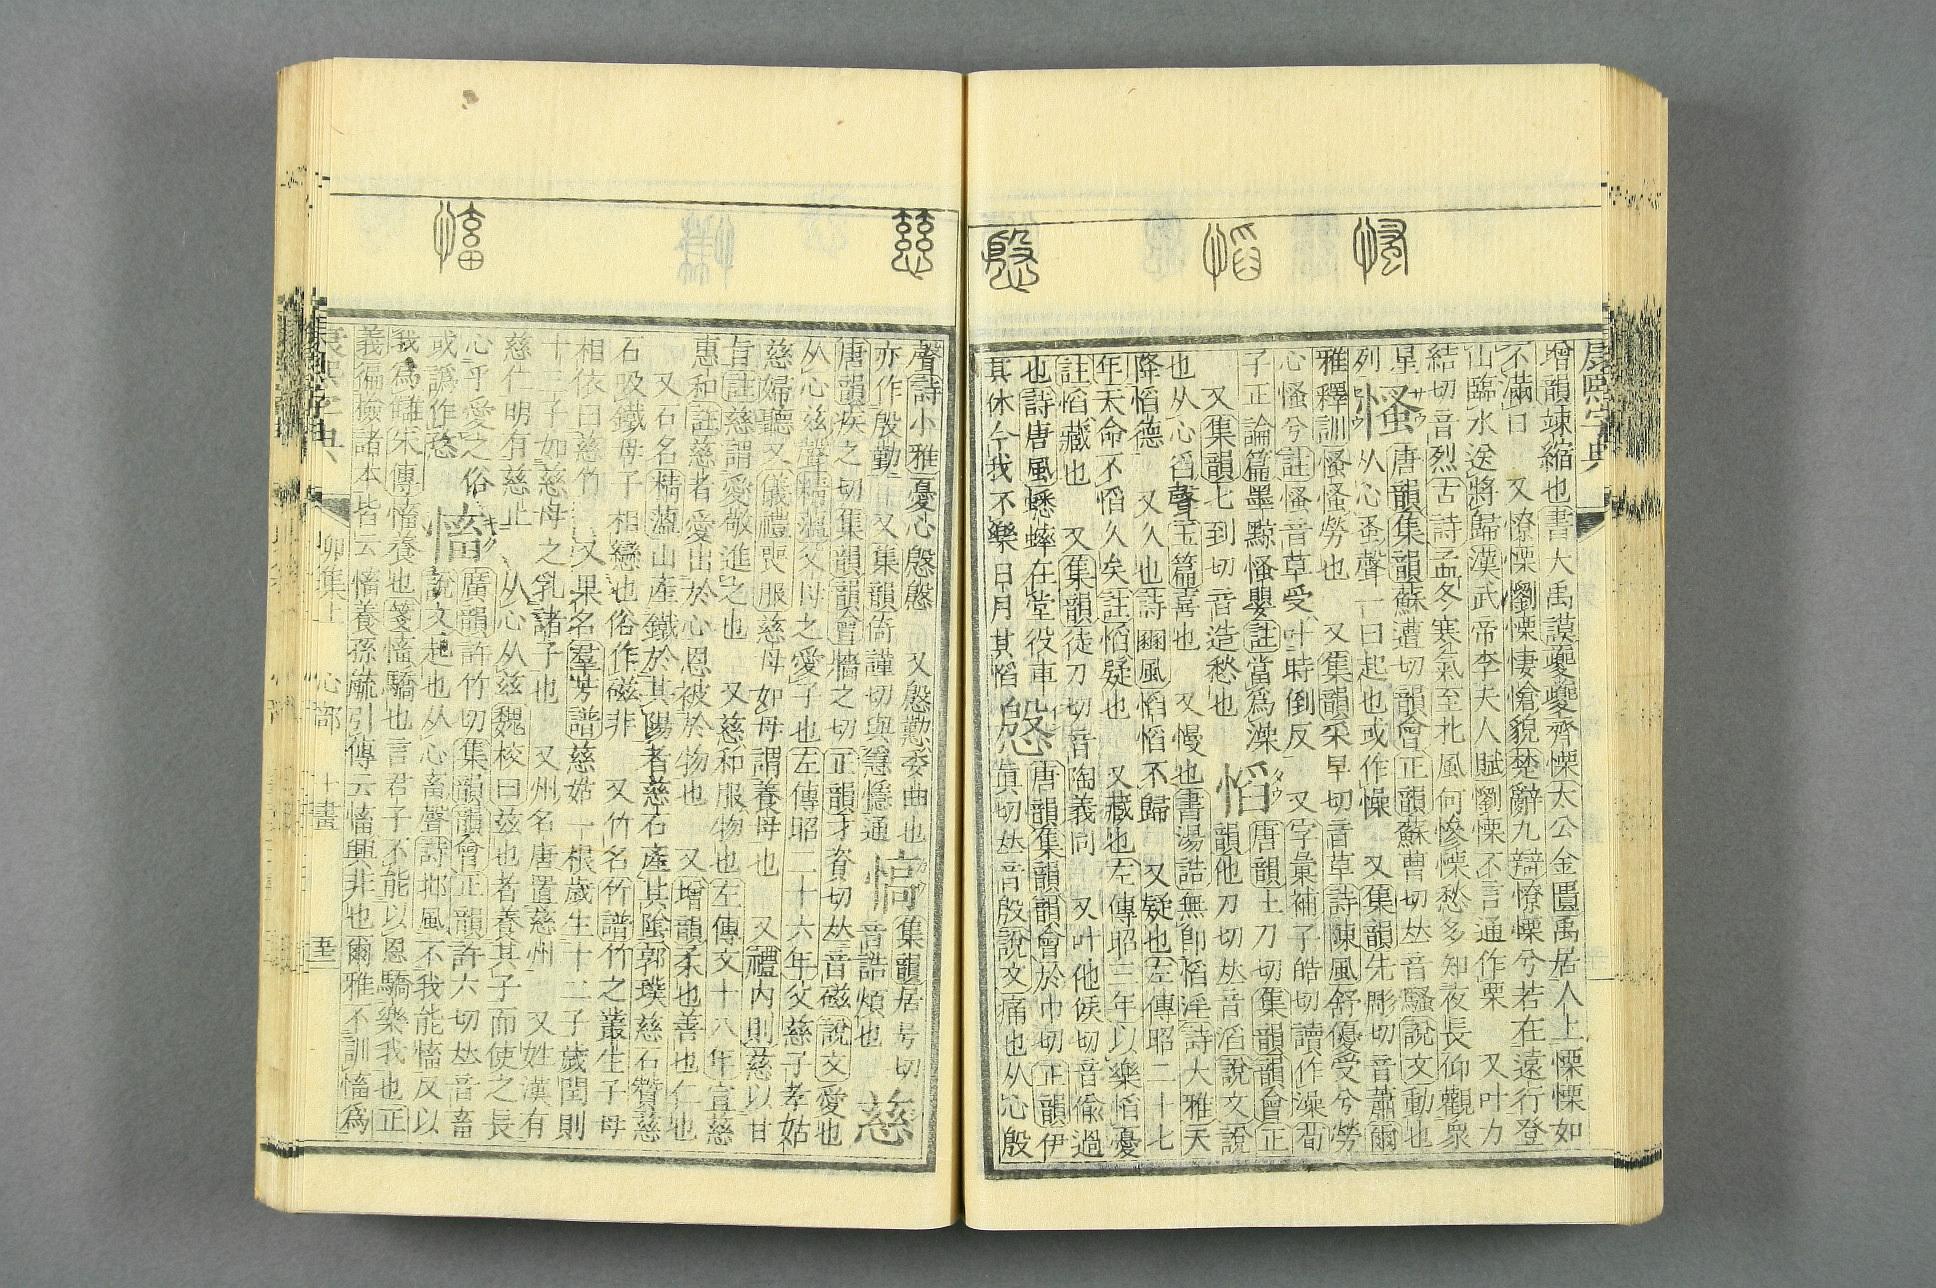 康熙字典
慅
慆
慇
增韻竦縮也書大禹謨夔夔齊慄太公金匱禹居人上慄慄如
不滿日 又憭慄懰慄悽愴貌楚辭九辯憭慄兮若在遠行登
山臨水送將歸漢武帝李夫人賦懰慄不言通作栗 又叶力
結切音烈古詩孟冬寒氣至北風何慘慄愁多知夜長仰觀衆
星
列
慅
唐韻集韻蘇遭切韻會正韻蘇曹切𠀤音騷說文動也
从心蚤聲一曰起也或作懆 又集韻先彫切音蕭爾
雅釋訓慅慅勞也 又集韻采早切音草詩陳風舒優受兮勞
心慅兮註慅音草受叶時倒反 又字彙補子皓切讀作澡荀
子正論篇墨黥慅嬰註當爲澡
慆
唐韻土刀切集韻韻會正
韻他刀切𠀤音滔說文說
又集韻七到切音造愁也
也从心舀聲玉篇喜也 又慢也書湯誥無卽慆淫詩大雅天
降慆德 又久也詩豳風慆慆不歸 又疑也左傳昭二十七
年天命不慆久矣註慆疑也 又藏也左傳昭三年以樂慆憂
註慆藏也 又集韻徒刀切音陶義同 又叶他候切音偸過
也詩唐風蟋蟀在堂役車
其休今我不樂日月其慆
慇
唐韻集韻韻會於巾切正韻伊
眞切𠀤音殷說文痛也从心殷
慈
慉
聲詩小雅憂心慇慇 又慇懃委曲也
亦作殷勤 又集韻倚謹切與㥯隱通
㥛
集韻居号切
音誥煩也
慈
唐韻疾之切集韻韻會牆之切正韻才資切𠀤音磁說文愛也
从心兹聲精薀父母之愛子也左傳昭二十六年父慈子孝姑
慈婦聽又儀禮喪服慈母如母謂養母也 又禮內則慈以甘
旨註慈謂愛敬進之也 又慈和服物也左傳文十八年宣慈
惠和註慈者愛出於心恩被於物也 又增韻柔也善也仁也
又石名精薀山產鐵於其陽者慈石產其陰郭璞慈石贊慈
石吸鐵母子相戀也俗作磁非 又竹名竹譜竹之叢生子母
相依曰慈竹 又果名羣芳譜慈姑一根歲生十二子歲閏則
十三子如慈母之乳諸子也 又州名唐置慈州 又姓漢有
慈仁明有慈止 从心从兹魏校曰兹也者養其子而使之長
心乎愛之俗
或譌作㤵
慉
廣韻許竹切集韻韻會正韻許六切𠀤音畜
說文起也从心畜聲詩邶風不我能慉反以
我爲讎朱傳慉養也箋慉驕也言君子不能以恩驕樂我也正
義徧檢諸本皆云慉養孫毓引傳云慉興非也爾雅不訓慉爲
康熙字典
卯集上
心部
十畫